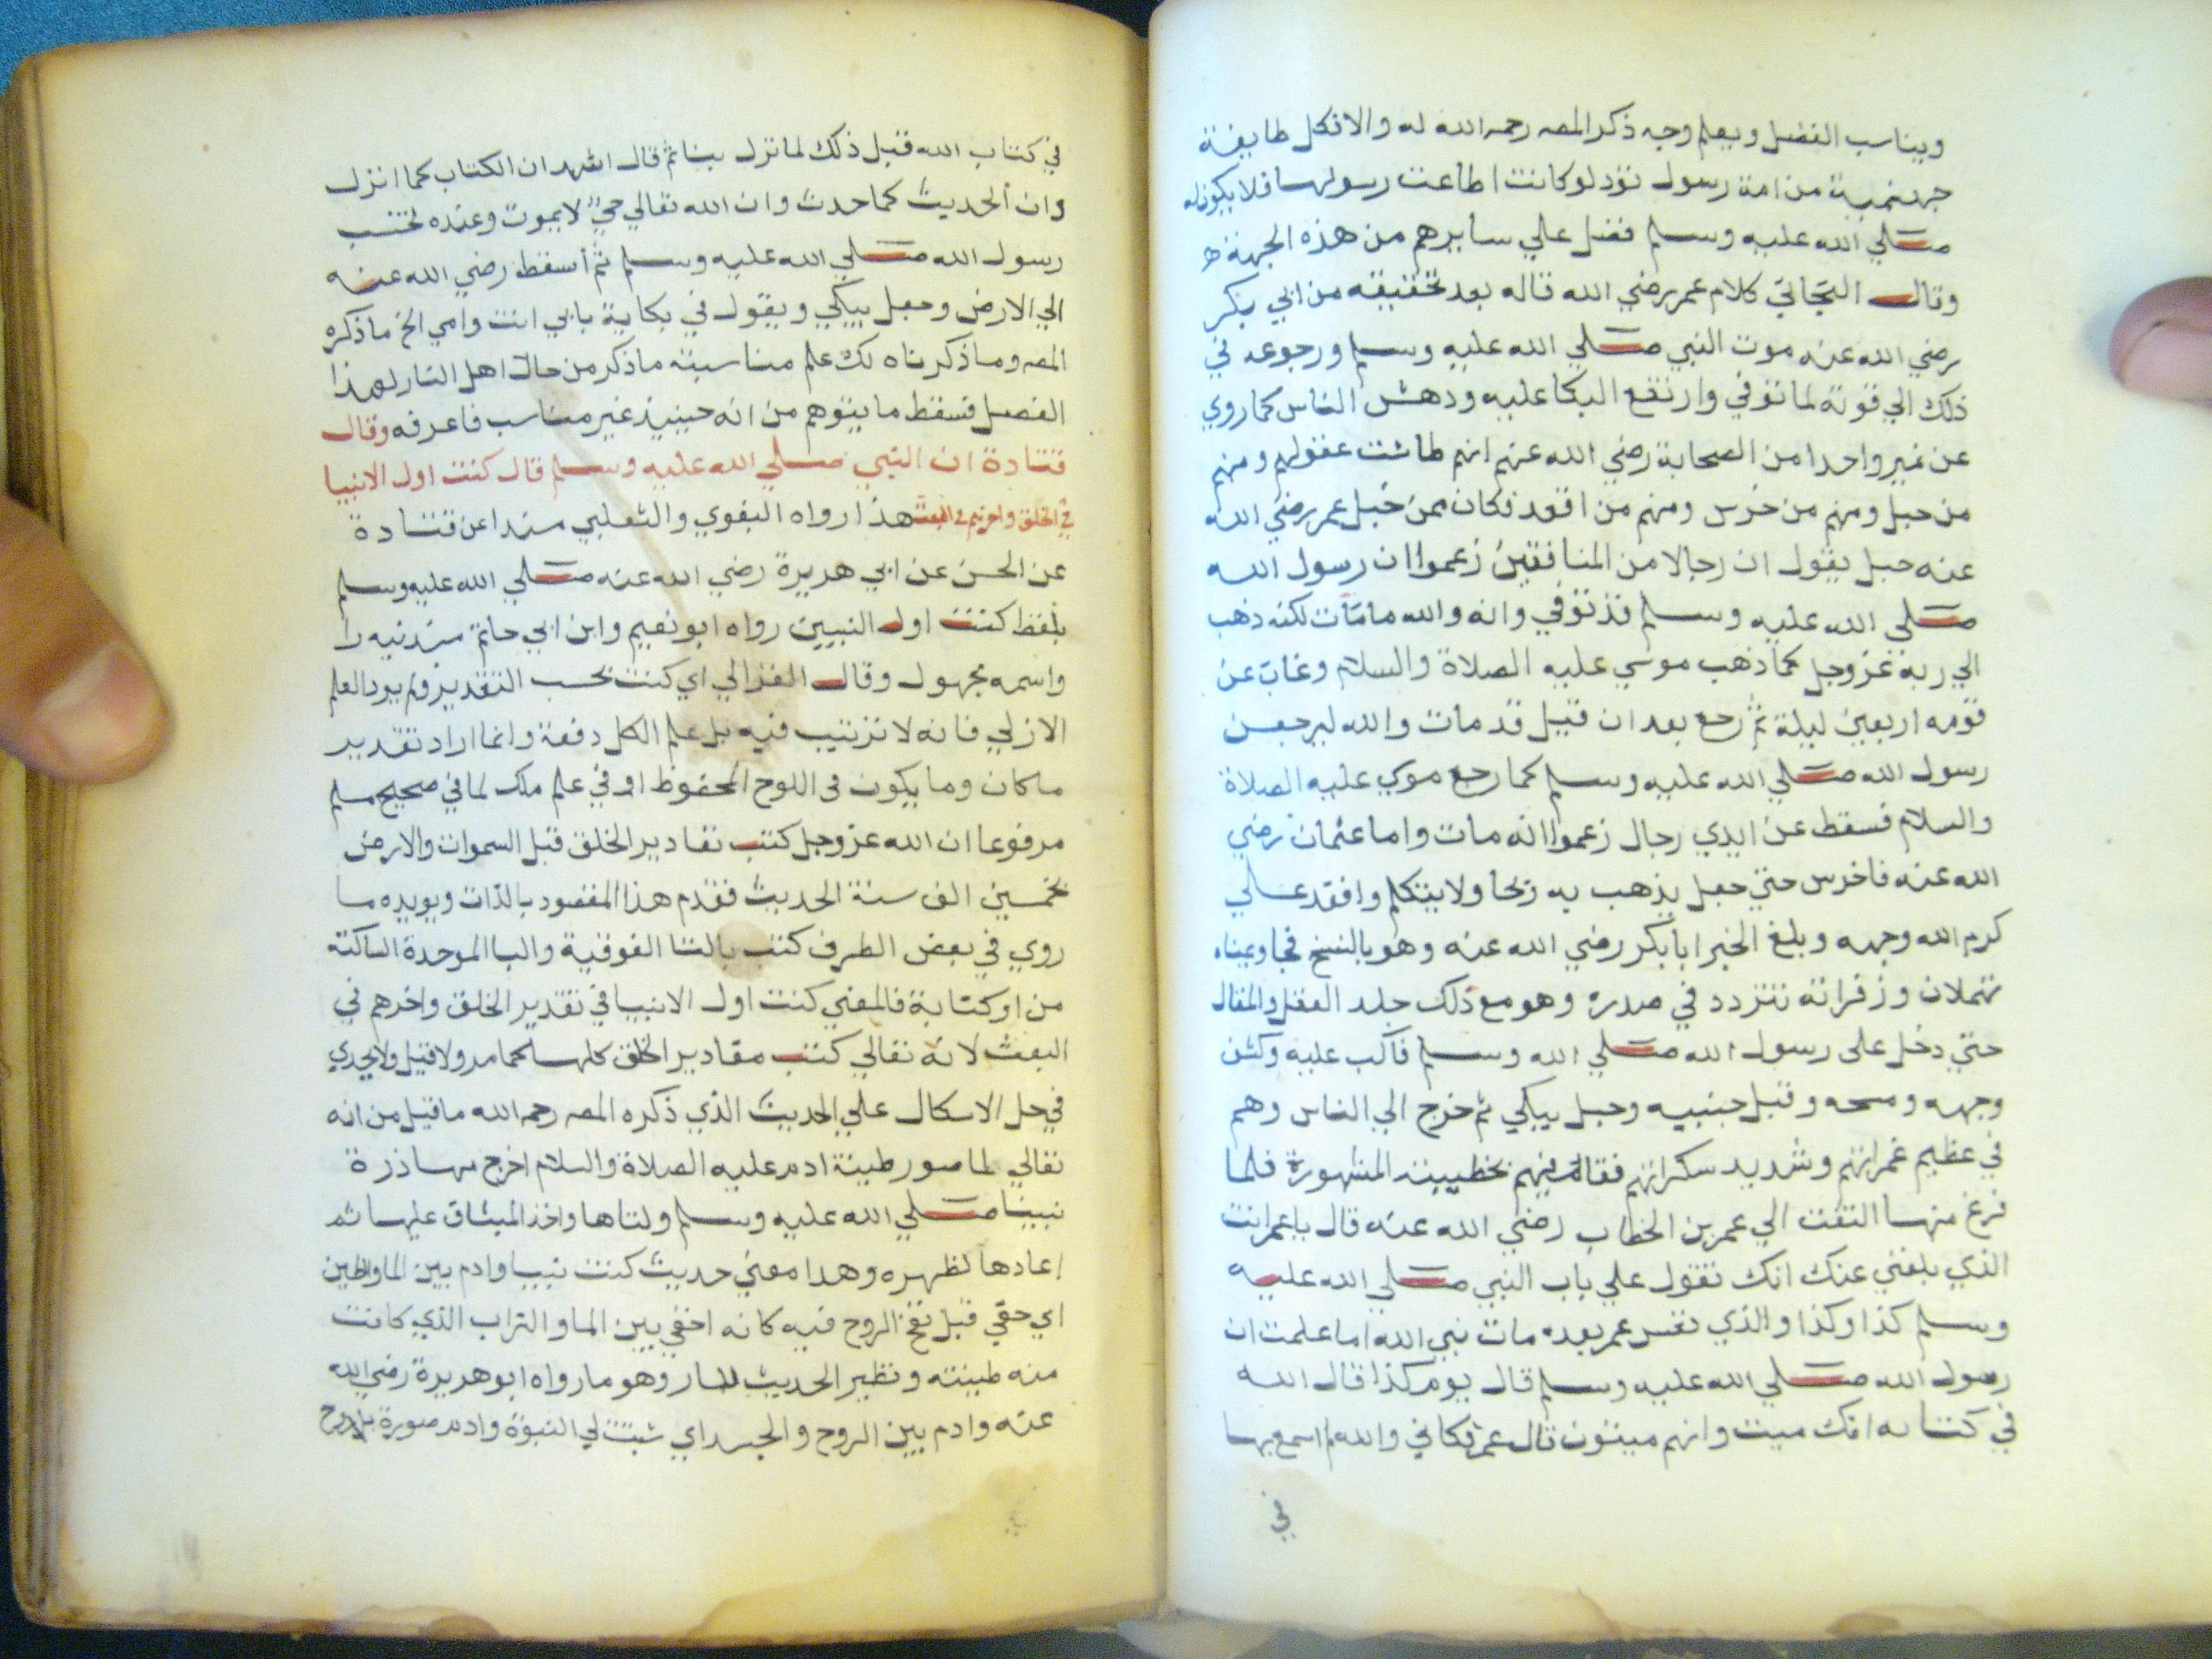 ويناسب الفضل ويعلم وجه ذكر المصه رحمه الله له والافكل طايفة
جهنمية من امة رسول تود لو كانت اطاعت رسولها فلا يكون له
صلي الله عليه وسلم فضل علي سايرهم من هذه الجهة ه
وقال التجاني كلام عمر رضي الله قاله بعد تحقيقه من ابي بكر
رضي الله عنه موت النبي صلي الله عليه وسلم ورجوعه في
ذلك الي قوته لما توفي وارتفع البكا عليه ودهش الناس كما روي
عن غير واحدا من الصحابة رضي الله عنهم انهم طاشت عقولهم ومنهم
من خبل ومنهم من خرس ومنهم من اقعد فكان ممن خبل عمر رضي الله
عنه جعل يقول ان رجالا من المنافقين زعموا ان رسول الله
صلي الله عليه وسلم قد توفي وانه والله ما مات لكنه ذهب
الي ربه عز وجل كما ذهب موسي عليه الصلاة والسلام وغاب عن
قومه اربعين ليلة ثم رجع بعد ان قيل قد مات والله ليرجعن
رسول الله صلي الله عليه وسلم كما رجع موسي عليه الصلاة
والسلام فسقط عن ايدي رجال زعموا انه مات واما عثمان رضي
الله عنه فاخرس حتي جعل يذهب به ولا يتكلم واقعد علي
كرم الله وجهه وبلغ الخبر ابا بكر رضي الله عنه وهو بالسنح فجا وعيناه
تهملان وزفراته تتردد في صدره وهو مع ذلك جلد العقل والمقال
حتي دخل علي رسول الله صلي الله وسلم فاكب عليه وكشف
وجهه ومسحه وقبل جبنيه وجعل يبكي ثم خرج الي الناس وهم
في عظيم غمراتهم وشديد سكراتهم فقام فيهم بخطبته المشهورة فلما
فرغ منها التفت الي عمر بن الخطاب رضي الله عنه قال يا عمر انت
الذي بلغني عنك انك تقول علي باب النبي صلي الله عليه
وسلم كذا وكذا والذي نفس عمر بيده مات نبي الله اما علمت ان
رسول الله صلي الله عليه وسلم قال يوم كذا قال الله
في كتابه انك ميت وانهم ميتون قال عمر فكاني والله لم اسمع بها
في
في كتاب الله قبل ذلك لما نزل بنا ثم قال اشهد ان الكتاب كما انزل
وان الحديث كما حدث وان الله تعالي حي لا يموت وعنده نحتسب
رسول الله صلي الله عليه وسلم ثم أسقط رضي الله عنه
الي الارض وجعل يبكي ويقول في بكاية بابي انت وامي الخ ما ذكره
المصه وما ذكرناه لك علم مناسبته ما ذكر من حال اهل النار لهذا
الفصل فسقط ما يتوهم من انه حينيذ غير مناسب فاعرفه وقال
قتادة ان النبي صلي الله عليه وسلم قال كنت اول الانبيا
في الخلق واخرهم في البعث هذا رواه البغوي والثعلبي مسندا عن قتادة
عن الحسن عن ابي هريرة رضي الله عنه صلي الله عليه وسلم
بلفظ كنت اول النبيين رواه ابو نعيم وابن ابي حاتم
واسمه مجهول وقال الغزالي اي كنت بحسب التقدير ولم يرد العلم
الازلي فانه لا ترتيب فيه بل علم الكل دفعة وانما اراد تقدير
ما كان وما يكون في اللوح المحفوظ او في علم ملك لما في صحيح مسلم
مرفوعا ان الله عز وجل كتب تقادير الخلق قبل السموات والارض
بخمسين الف سنة الحديث فقدم هذا المقصود بالذات ويويده ما
روي في بعض الطرف كتبت بالتا الفوقية والبا الموحدة الساكنة
من او كتابة فالمعني كنت اول الانبيا في تقدير الخلق واخرهم في
البعث لانه تعالي كتب مقادير الخلق كلها كما مر ولا قيل ولا يجدي
في حل الاسكال علي الحديث الذي ذكره المصه رحمه الله ما قيل من انه
تعالي لما صور طينة ادم عليه الصلاة والسلام اخرج منها ذرة
نبينا صلي الله عليه وسلم ولتاها واخذ الميثاق عليها ثم
اعادها لظهره وهدا معني حديث كنت نبيا وادم بين الما والطين
اي حقي قبل نفخ الروح فيه كانه اخفي بين الما والتراب الذي كانت
منه طينته ونظير الحديث المار وهو ما رواه ابو هريرة رضي الله
عنه وادم بين الروح والجسد اي ثبت لي النبوة وادم صورة بلا روح